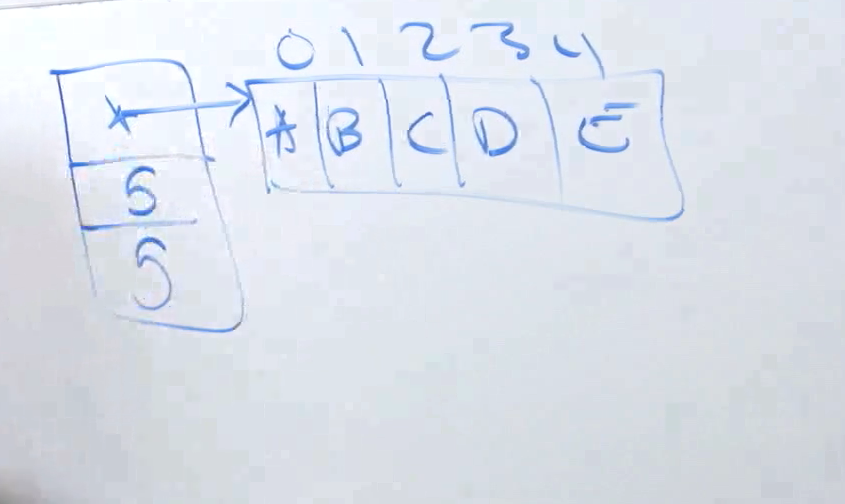 0 1 2 3 4
* A B C D E
5
5